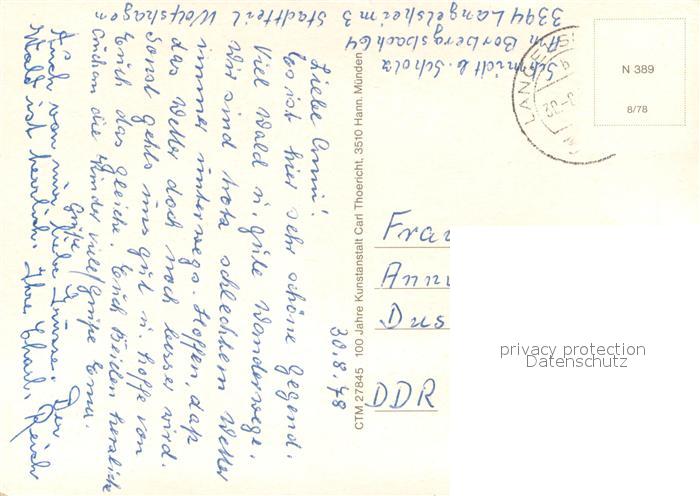 Schmidt b. Scholz
Am Borbergsbach 64
3394 Langelsheim 3 Stadtteil Wolfshagen
30.8.78
Liebe Anni!
Es ist hier sehr schöne Gegend.
Viel Wald u. gute Wanderwege.
Wir sind trotz schlechtem Wetter
immer unterwegs. Hoffen, daß
das Wetter doch noch besser wird.
Sonst gehts uns gut u. hoffe von
Euch das gleiche. Euch beiden herzliche
Grüße
auch an die Kinder viele Grüße Erna.
Auch von mir liebe Grüsse. Der
Wald ist herrlich. Ihre Charl. Reich
CTM 27845 100 Jahre Kunstanstalt Carl Thoericht, 3510 Hann. Münden
LANGEL
N 389
8/78
Frau
Anni
Dus
DDR
privacy protection
Datenschutz